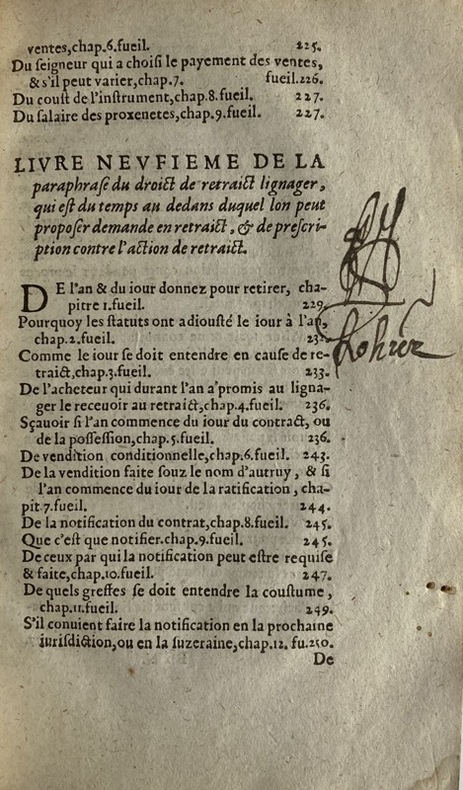 ventes,chap.6.fueil. 225.
Du ſeigneur qui a choiſi le payement des ventes,
& s'il peut varier,chap.7. fueil.226.
Du couſt de l'inſtrument,chap.8.fueil. 227.
Du ſalaire des proxenetes,chap.9.fueil. 227.
LIVRE NEVFIEME DE LA
paraphraſe du droict de retraict lignager,
qui eſt du temps au dedans duquel lon peut
propoſer demande en retraict, & de preſcri-
ption contre l'action de retraict.
DE l'an & du iour donnez pour retirer, cha-
pitre 1.fueil. 229
Pourquoy les ſtatuts ont adiouſté le iour à l'an,
chap.2.fueil.
Comme le iour ſe doit entendre en cauſe de re-
traict,chap.3.fueil. 233.
De l'acheteur qui durant l'an a'promis au ligna-
ger le receuoir au retraict,chap.4.fueil. 236.
Sçauoir ſi l'an commence du iour du contract, ou
de la poſſeſſion,chap.5.fueil. 236.
De vendition conditionnelle,chap.6.fueil. 243.
De la vendition faite ſouz le nom d'autruy, & ſi
l'an commence du iour de la ratification, cha-
pit.7.fueil. 244.
De la notification du contrat,chap.8.fueil. 245.
Que c'eſt que notifier.chap.9.fueil. 245.
De ceux par qui la notification peut eſtre requiſe
& faite,chap.10.fueil. 247.
De quels greffes ſe doit entendre la couſtume,
chap.11.fueil. 249.
S'il conuient faire la notification en la prochaine
iuriſdiction,ou en la ſuzeraine,chap.12. fu.250.
De